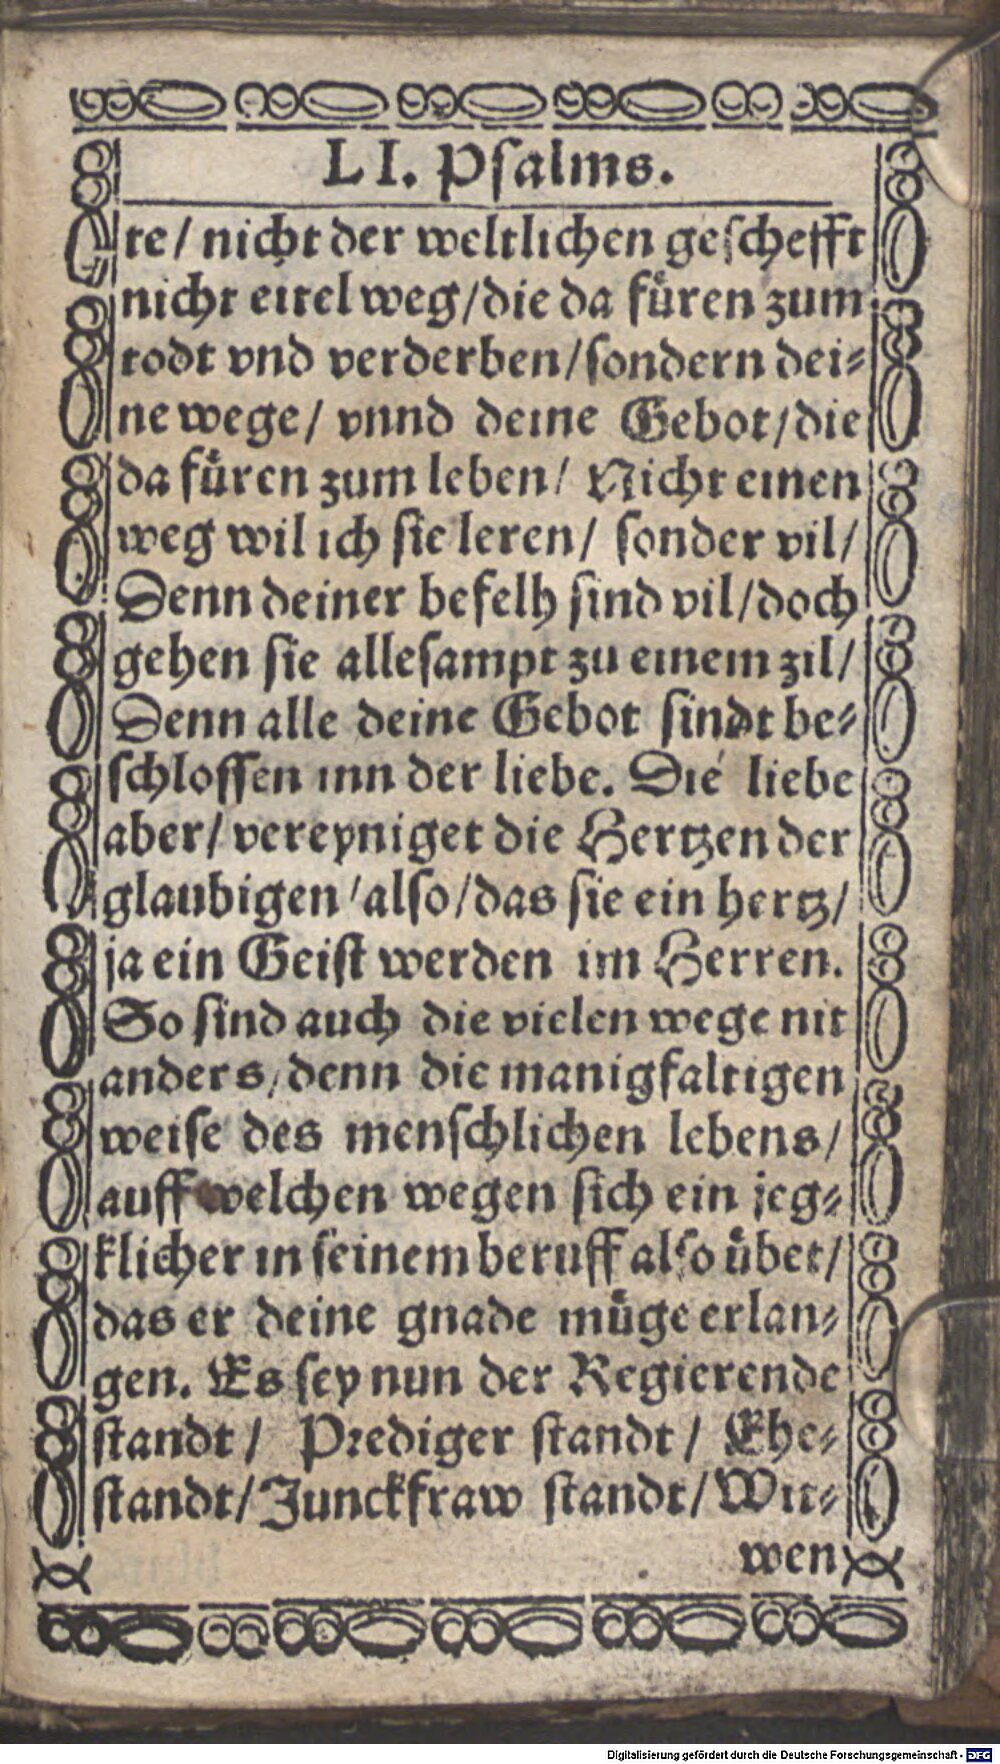 LI. Psalms.
te/ nicht der weltlichen geschefft
nicht eitel weg/die da fuͤren zum
todt vnd verderben/sondern dei⸗
ne wege/ vnnd deine Gebot/die
da fuͤren zum leben/ Nicht einen
weg wil ich sie leren/ sonder vil/
Denn deiner befelh sind vil/doch
gehen sie allesampt zu einem zil/
Denn alle deine Gebot sindt be⸗
schlossen inn der liebe. Die liebe
aber/ vereyniget die Hertzen der
glaubigen/also/das sie ein hertz/
ja ein Geist werden im Herren.
So sind auch die vielen wege nit
anders/denn die manigfaltigen
weise des menschlichen lebens/
auff welchen wegen sich ein jeg⸗
klicher in seinem beruff also uͤbet/
das er deine gnade muͤge erlan⸗
gen. Es sey nun der Regierende
standt/ Prediger standt/ Ehe⸗
standt/Junckfraw standt/Wit⸗
wen
Digitalisierung gefördert durch die Deutsche Forschungsgemeinschaft - DFG